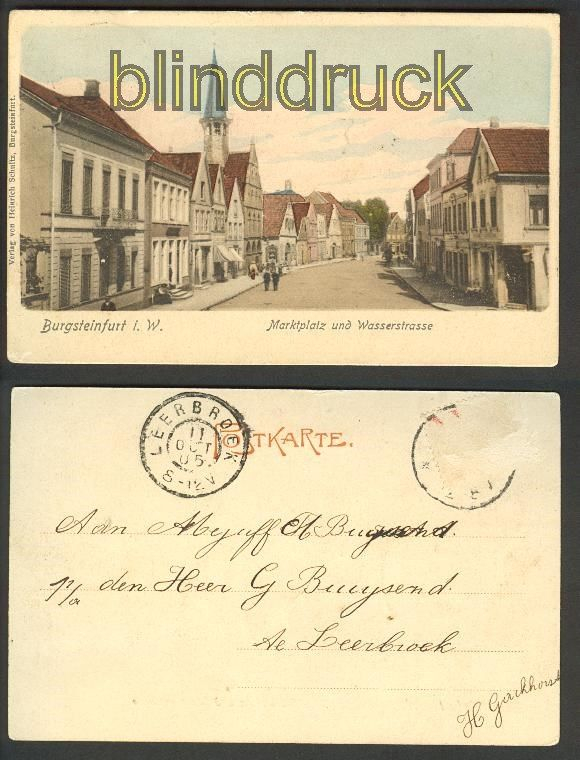 blinddruck
Verlag von Heinrich Schultz, Burgsteinfurt.
Burgsteinfurt i. W.
Marktplatz und Wasserstrasse
POSTKARTE.
LEERBROEK
11
OCT
05
8-12V
Aan Mejuff A Buysend.
p/a den Heer G Buysend.
te Leerbroek
H